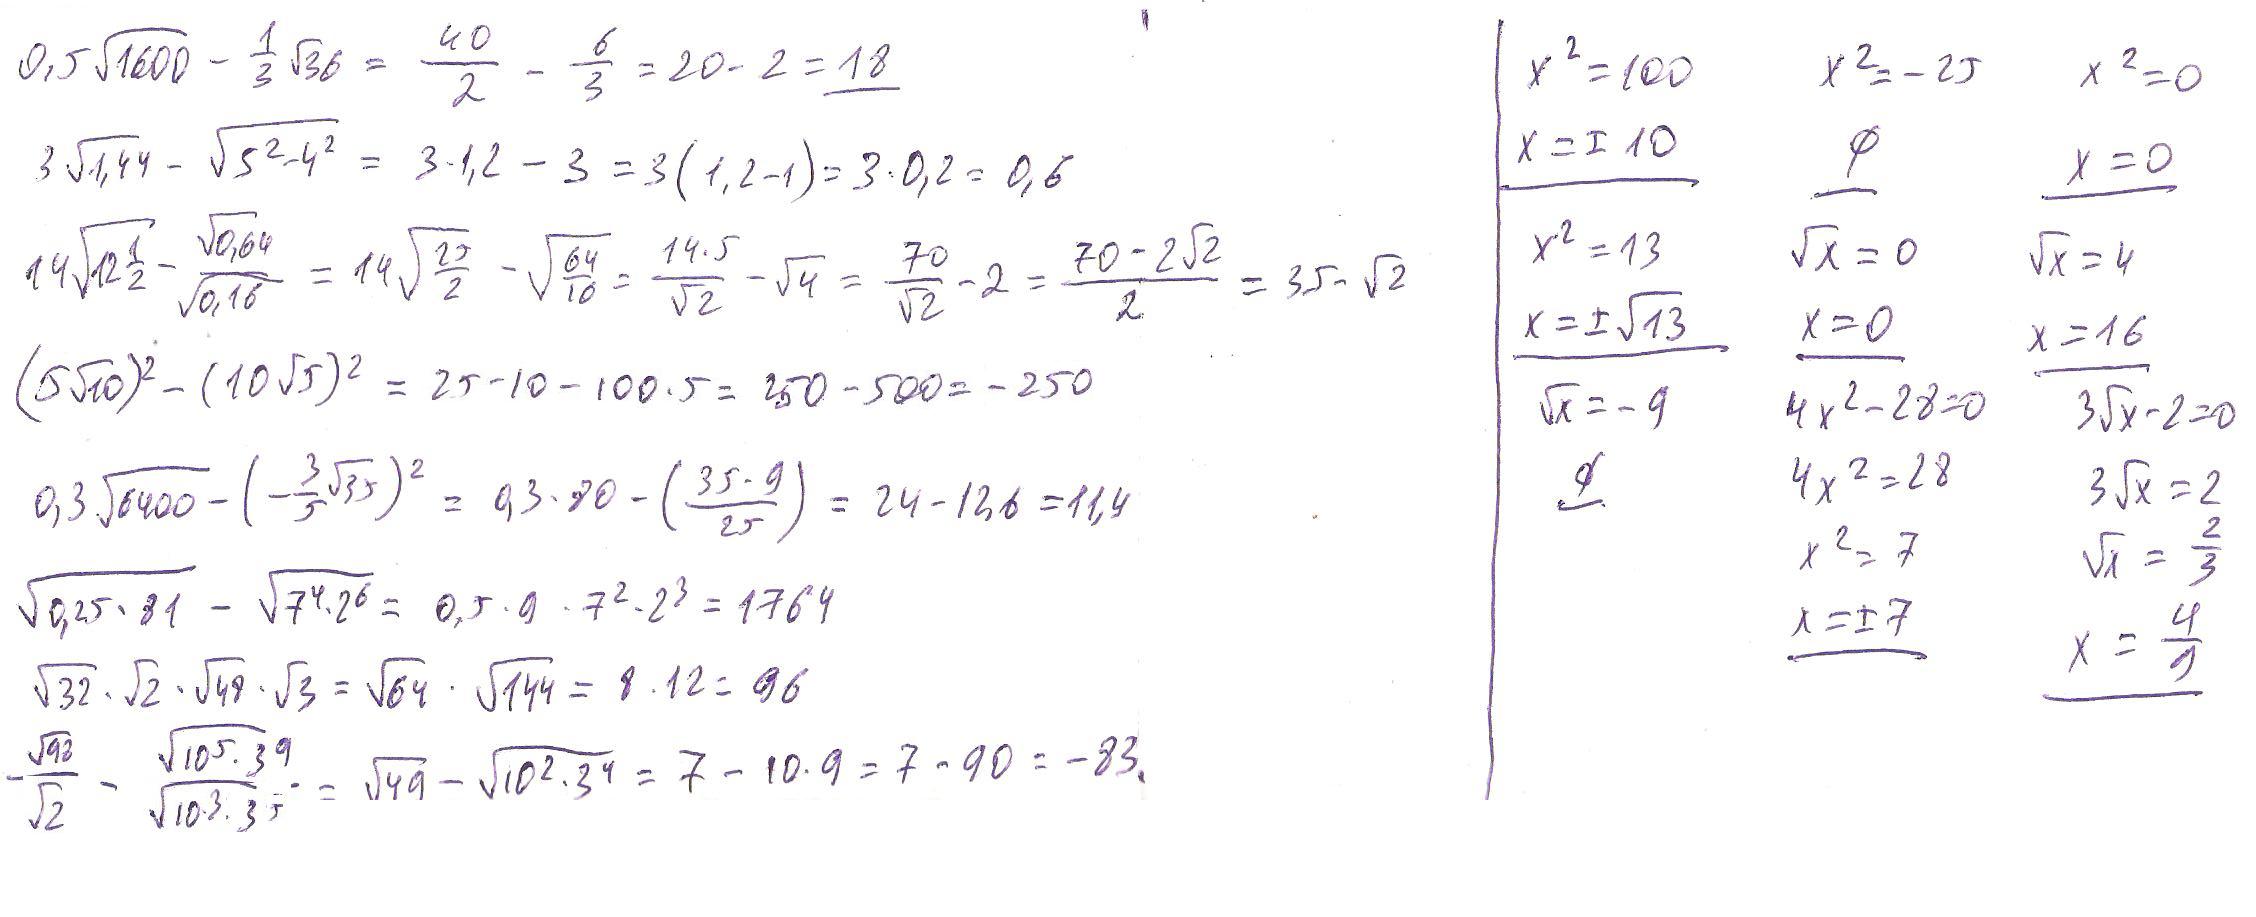 0,5√1600 - 1/3 √36 = 40/2 - 6/3 = 20 - 2 = 18
3√1,44 - √(5² - 4²) = 3·1,2 - 3 = 3(1,2 - 1) = 3·0,2 = 0,6
14√(12 1/2) - √0,64/√0,16 = 14√(25/2) - √(64/16) = 14·5/√2 - √4 = 70/√2 - 2 = (70 - 2√2)/2 = 35 - √2
(5√10)² - (10√5)² = 25·10 - 100·5 = 250 - 500 = -250
0,3√6400 - (-3/5 √35)² = 0,3·80 - (35·9/25) = 24 - 12,6 = 11,4
√(0,25·81) - √(7⁴·2⁶) = 0,5·9·7²·2³ = 1764
√32·√2·√48·√3 = √64·√144 = 8·12 = 96
-√98/√2 - √(10⁵·3⁹)/√(10³·3⁵) = √49 - √(10²·3⁴) = 7 - 10·9 = 7 - 90 = -83
x² = 100
x = ±10
x² = -25
∅
x² = 0
x = 0
x² = 13
x = ±√13
√x = 0
x = 0
√x = 4
x = 16
√x = -9
∅
4x² - 28 = 0
4x² = 28
x² = 7
x = ±7
3√x - 2 = 0
3√x = 2
√x = 2/3
x = 4/9